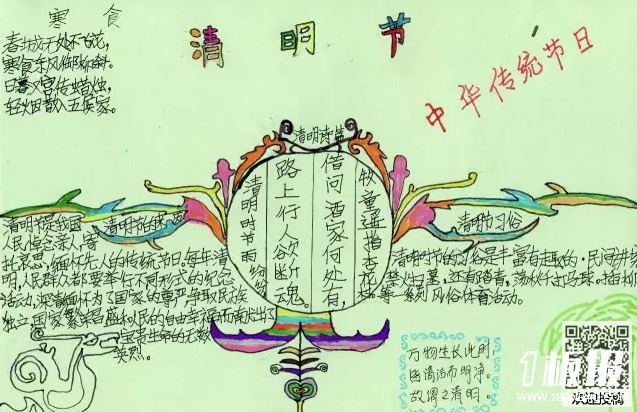 寒食
春城无处不飞花,
寒食东风御柳斜。
日暮汉宫传蜡烛,
轻烟散入五侯家。
清明节
中华传统节日
清明诗篇
清明时节雨纷纷
路上行人欲断魂。
借问酒家何处有,
牧童遥指杏花
清明节是我国
人民悼念亲人,寄
托哀思,缅怀先人的传统节日,每年清
明,人民群众都要举行不同形式的纪念
活动,深情缅怀为了国家的尊严争取民族
独立国家繁荣昌盛和人民的自由幸福而献出了
宝贵生命的无数
英烈。
清明的习俗
清明时节的习俗是丰富有趣的,民间讲禁
火扫墓,还有踏青、荡秋千、打马球、插柳
等一系列风俗体育活动。
万物生长此时
皆清洁而明净。
故谓之清明。
1板报
欢迎投稿